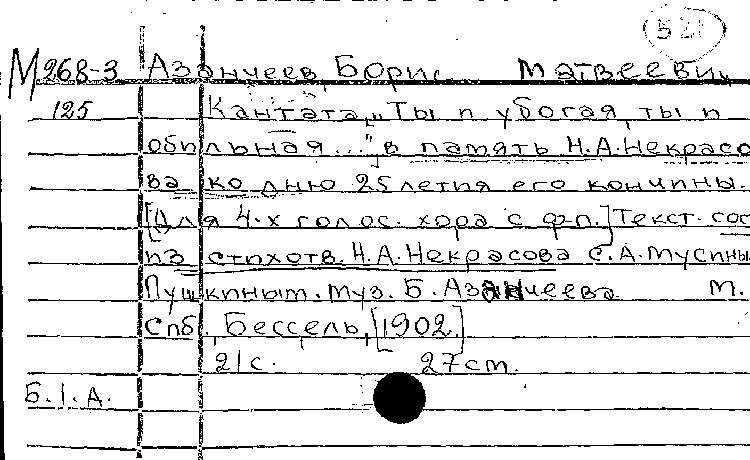 М 268-3 Азанчеев, Борис Матвеевич
125 Кантата „Ты и убогая, ты и
обильная..." в память Н.А.Некрасо
ва ко дню 25летия его кончины.
[Для 4-х голос. хора с ф-п.] Текст сос
из стихотв. Н.А.Некрасова С.А.Мусины
Пушкиным. Муз. Б. Азанчеева М.
Спб., Бессель, [1902.]
21с. 27 см.
Б.I.А.